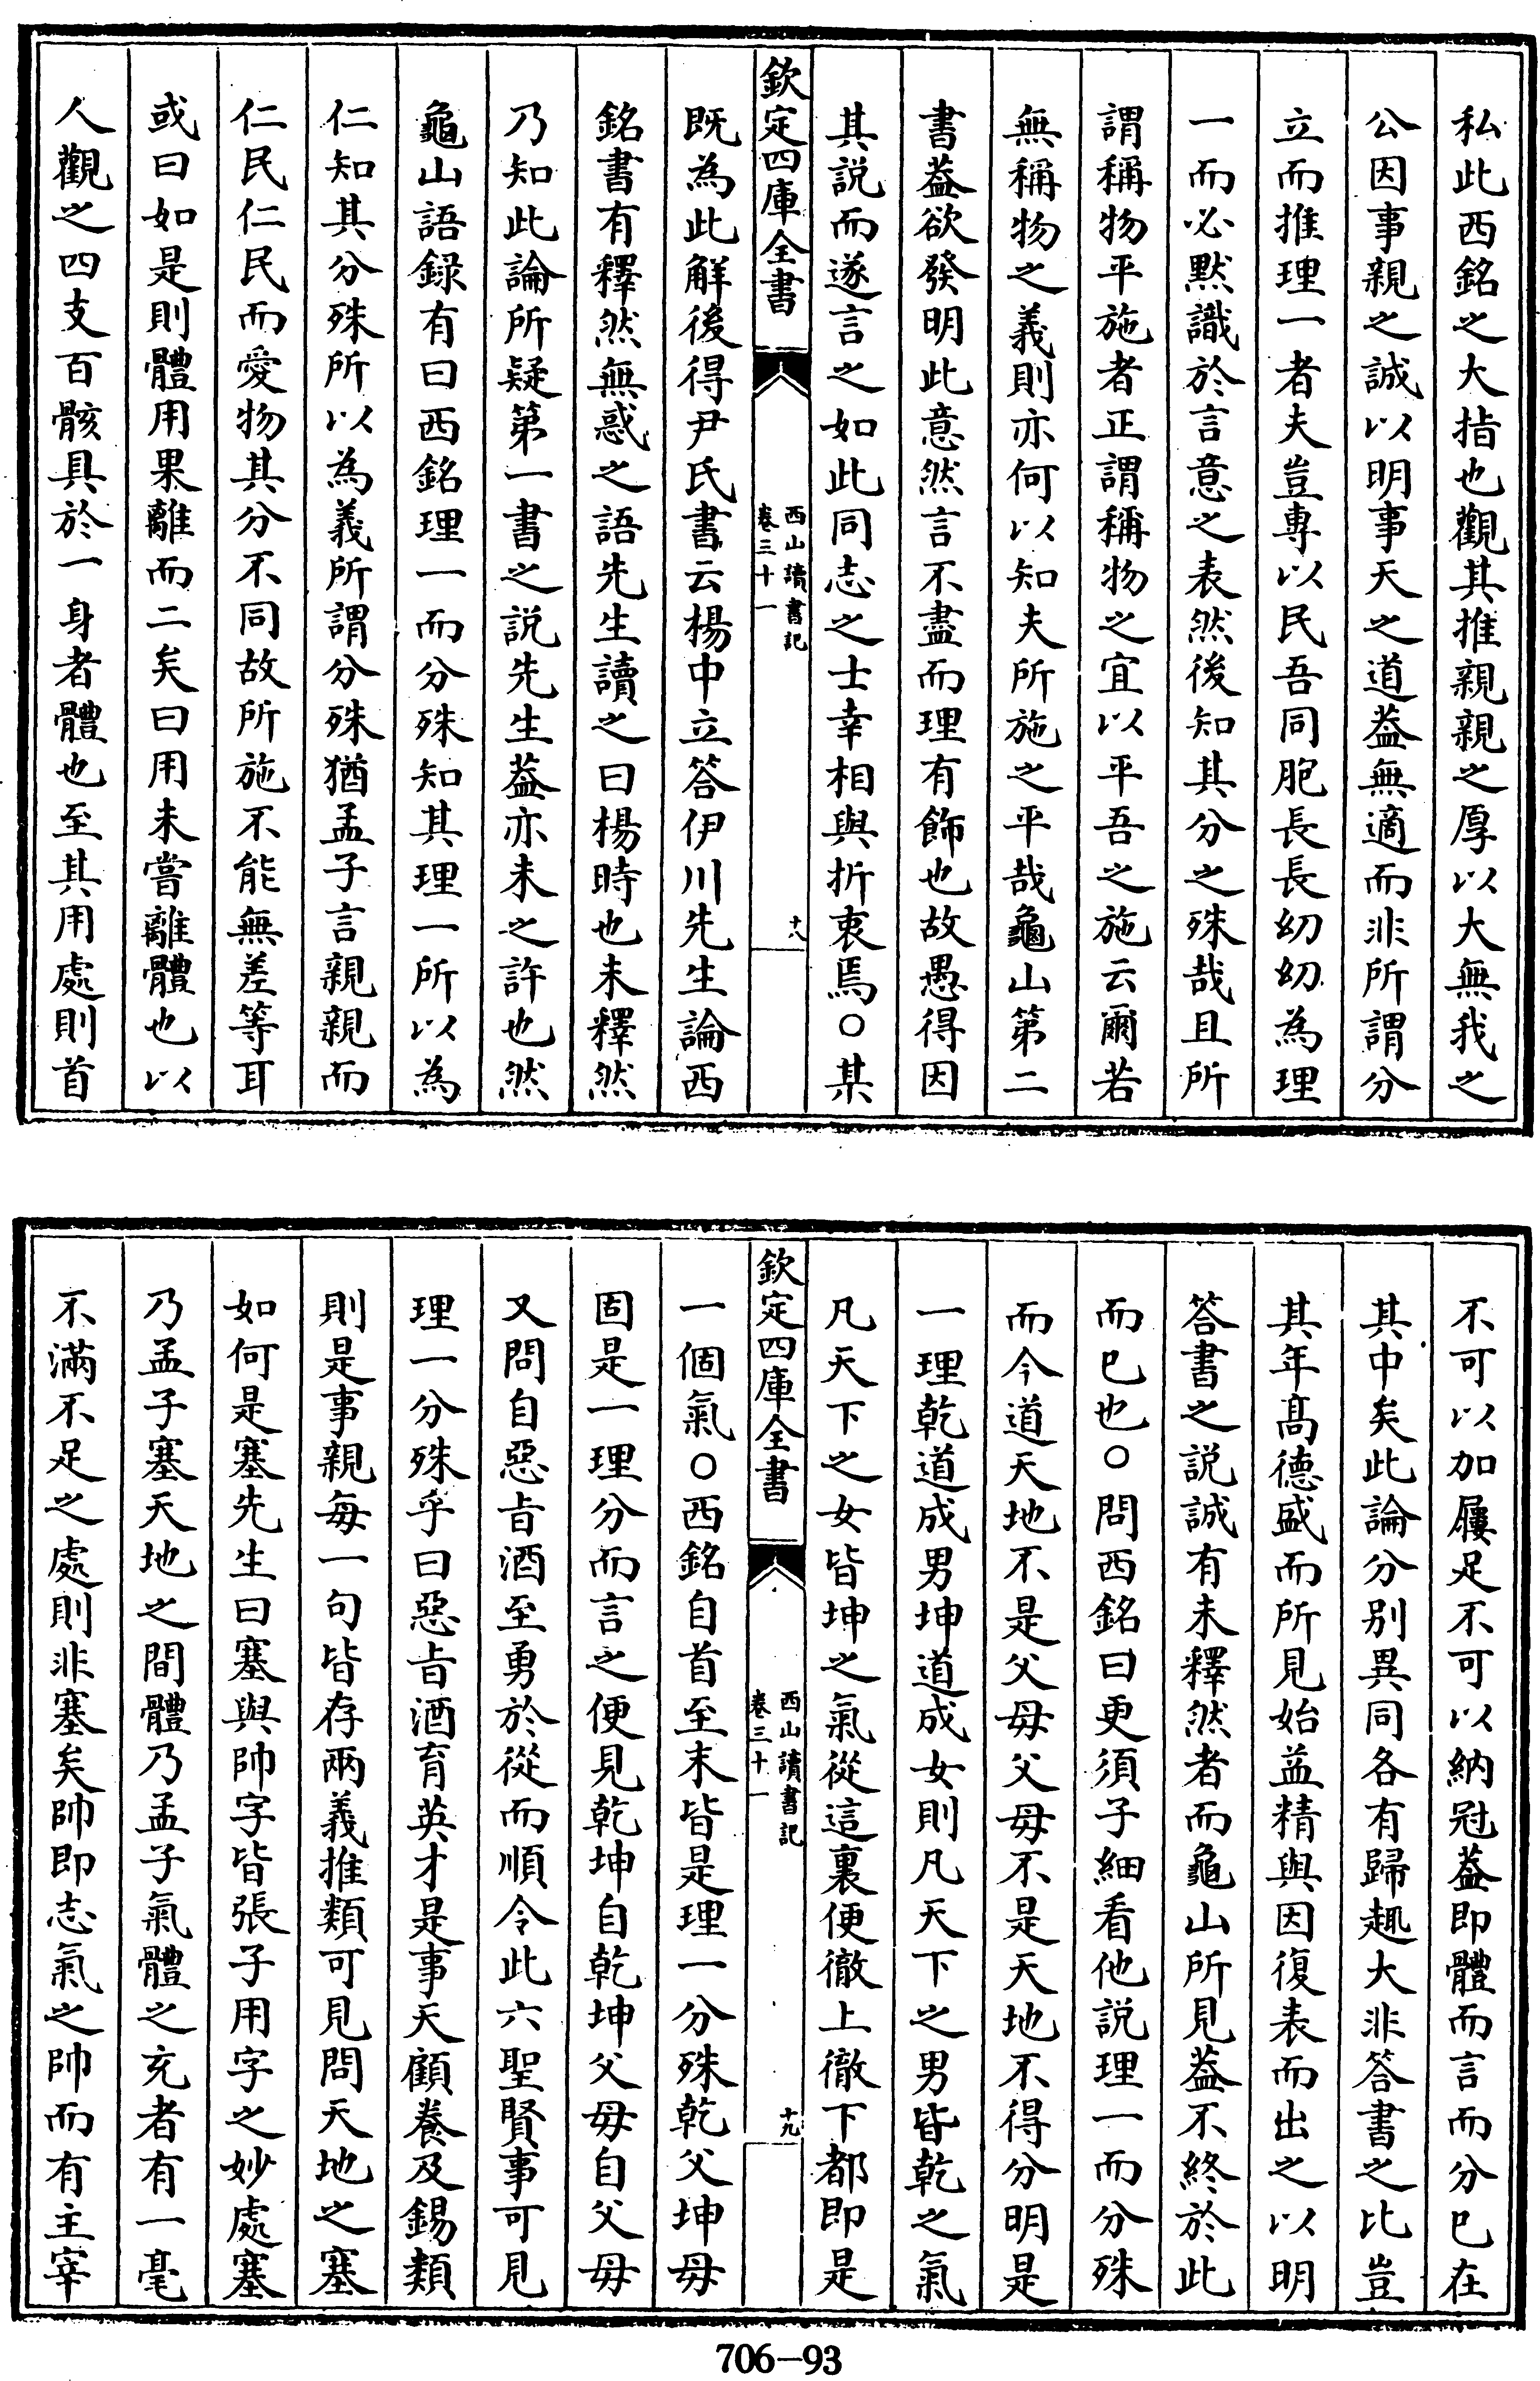 私此西銘之大指也觀其推親親之厚以大無我之
公因事親之誠以明事天之道葢無適而非所謂分
立而推理一者夫豈專以民吾同胞長長幼幼為理
一而必黙識於言意之表然後知其分之殊哉且所
謂稱物平施者正謂稱物之宜以平吾之施云爾若
無稱物之義則亦何以知夫所施之平哉龜山第二
書葢欲發明此意然言不盡而理有餙也故愚得因
其説而遂言之如此同志之士幸相與折衷焉○某
欽定四庫全書
西山讀書記
卷三十一
十八
既為此解後得尹氏書云楊中立答伊川先生論西
銘書有釋然無惑之語先生讀之曰楊時也未釋然
乃知此論所疑第一書之説先生葢亦未之許也然
龜山語録有曰西銘理一而分殊知其理一所以為
仁知其分殊所以為義所謂分殊猶孟子言親親而
仁民仁民而愛物其分不同故所施不能無差等耳
或曰如是則體用果離而二矣曰用未嘗離體也以
人觀之四支百骸具於一身者體也至其用處則首
不可以加屨足不可以納冠葢即體而言而分已在
其中矣此論分别異同各有歸趣大非答書之比豈
其年髙德盛而所見始益精與因復表而出之以明
答書之説誠有未釋然者而龜山所見葢不終於此
而已也○問西銘曰更須子細看他說理一而分殊
而今道天地不是父母父母不是天地不得分明是
一理乾道成男坤道成女則凡天下之男皆乾之氣
凡天下之女皆坤之氣從這裏便徹上徹下都即是
欽定四庫全書
西山讀書記
卷三十一
十九
一個氣○西銘自首至末皆是理一分殊乾父坤母
固是一理分而言之便見乾坤自乾坤父母自父母
又問自惡㫖酒至勇於從而順令此六聖賢事可見
理一分殊乎曰惡㫖酒育英才是事天顧養及錫類
則是事親每一句皆存兩義推類可見問天地之塞
如何是塞先生曰塞與帥字皆張子用字之妙處塞
乃孟子塞天地之間體乃孟子氣體之充者有一毫
不滿不足之處則非塞矣帥即志氣之帥而有主宰
706-93